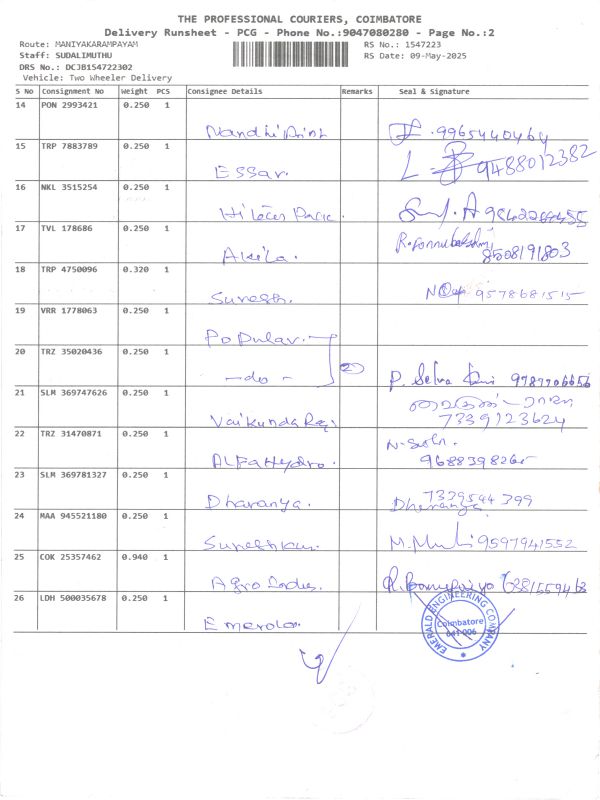 THE PROFESSIONAL COURIERS, COIMBATORE
Delivery Runsheet - PCG - Phone No.:9047080280 - Page No.:2
Route: MANIYAKARAMPAYAM RS No.: 1547223
Staff: SUDALIMUTHU RS Date: 09-May-2025
DRS No.: DCJB154722302
Vehicle: Two Wheeler Delivery
S No Consignment No Weight PCS Consignee Details Remarks Seal & Signature
14 PON 2993421 0.250 1
Nandhi Print 9965440464
15 TRP 7883789 0.250 1
Essar. 9488012382
16 NKL 3515254 0.250 1
17 TVL 178686 0.250 1
Akila. 8508191803
18 TRP 4750096 0.320 1
Suresh. 9578681515
19 VRR 1778063 0.250 1
Popular.
20 TRZ 35020436 0.250 1
-do- P. Selva
21 SLM 369747626 0.250 1
Vaikunda 7339123624
22 TRZ 31470871 0.250 1
Alfa Hydro.
23 SLM 369781327 0.250 1
Dharanya. 7339544399
24 MAA 945521180 0.250 1
9597941552
25 COK 25357462 0.940 1
Agro
26 LDH 500035678 0.250 1
EMERALD ENGINEERING COMPANY
Coimbatore
641 006